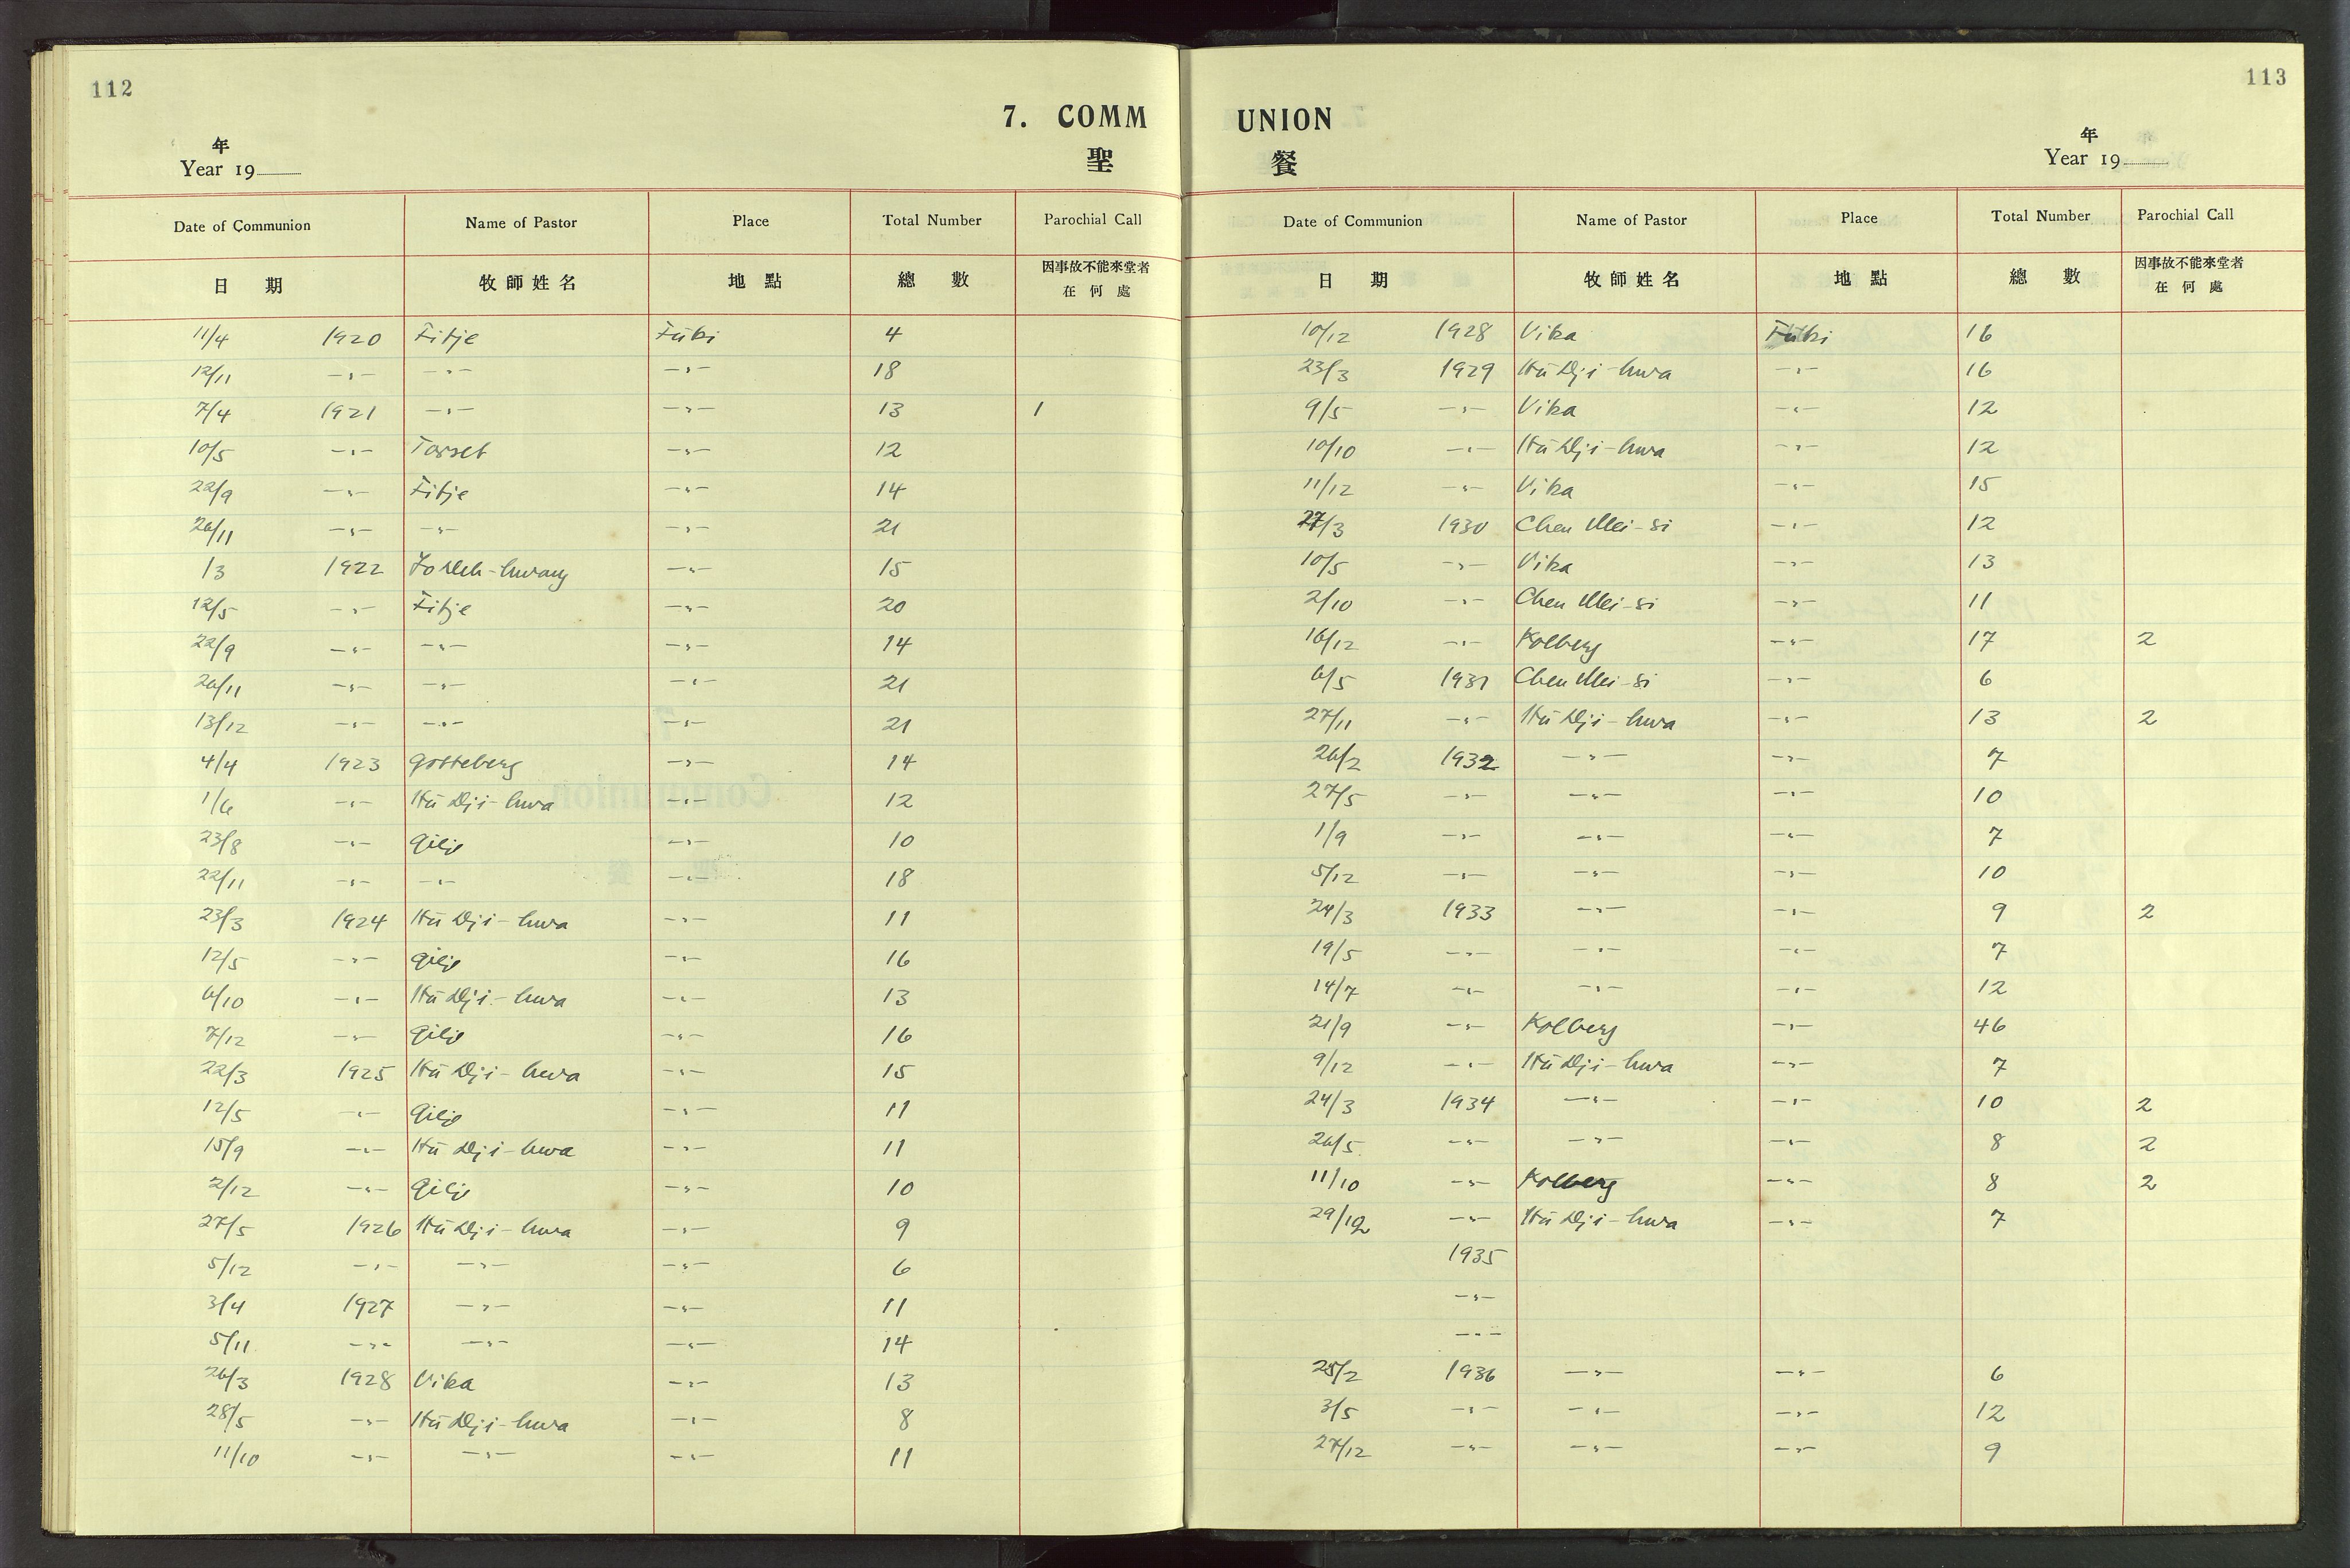 112
113
7. COMM UNION
聖 餐
年
Year 19
年
Year 19
Date of Communion Name of Pastor Place Total Number Parochial Call
日 期 牧師姓名 地點 總數 因事故不能來堂者在何處
11/4 1920 Fitje Füki 4
12/11 -"- -"- -"- 18
7/4 1921 -"- -"- 13 1
10/5 -"- Torset -"- 12
22/9 -"- Fitje -"- 14
26/11 -"- -"- -"- 21
1/3 1922 -"- 15
12/5 -"- Fitje -"- 20
22/9 -"- -"- -"- 14
26/11 -"- -"- -"- 21
13/12 -"- -"- -"- 21
4/4 1923 Gotteberg -"- 14
1/6 -"- Hü Dji-hwa -"- 12
23/8 -"- Gilje -"- 10
22/11 -"- -"- -"- 18
23/3 1924 Hü Dji-hwa -"- 11
12/5 -"- Gilje -"- 16
6/10 -"- Hü Dji-hwa -"- 13
7/12 -"- Gilje -"- 16
22/3 1925 Hü Dji-hwa -"- 15
12/5 -"- Gilje -"- 11
15/9 -"- Hü Dji-hwa -"- 11
2/12 -"- Gilje -"- 10
27/5 1926 Hü Dji-hwa -"- 9
5/12 -"- -"- -"- 6
3/4 1927 -"- -"- 11
5/11 -"- -"- -"- 14
26/3 1928 Vika -"- 13
28/5 -"- Hü Dji-hwa -"- 8
11/10 -"- -"- -"- 11
Date of Communion Name of Pastor Place Total Number Parochial Call
日 期 牧師姓名 地點 總數 因事故不能來堂者在何處
10/12 1928 Vika Füki 16
23/3 1929 Hü Dji-hwa -"- 16
9/5 -"- Vika -"- 12
10/10 -"- Hü Dji-hwa -"- 12
11/12 -"- Vika -"- 15
27/3 1930 Chen Mei-si -"- 12
10/5 -"- Vika -"- 13
2/10 -"- Chen Mei-si -"- 11
16/12 -"- Kolberg -"- 17 2
6/5 1931 Chen Mei-si -"- 6
27/11 -"- Hü Dji-hwa -"- 13 2
26/2 1932 -"- -"- 7
27/5 -"- -"- -"- 10
1/9 -"- -"- -"- 7
5/12 -"- -"- -"- 10
24/3 1933 -"- -"- 9 2
19/5 -"- -"- -"- 7
14/7 -"- -"- -"- 12
21/9 -"- Kolberg -"- 46
9/12 -"- Hü Dji-hwa -"- 7
24/3 1934 -"- -"- 10 2
26/5 -"- -"- -"- 8 2
11/10 -"- Kolberg -"- 8 2
29/12 -"- Hü Dji-hwa -"- 7
1935
-"-
-"-
25/2 1936 -"- -"- 6
3/5 -"- -"- -"- 12
27/12 -"- -"- -"- 9